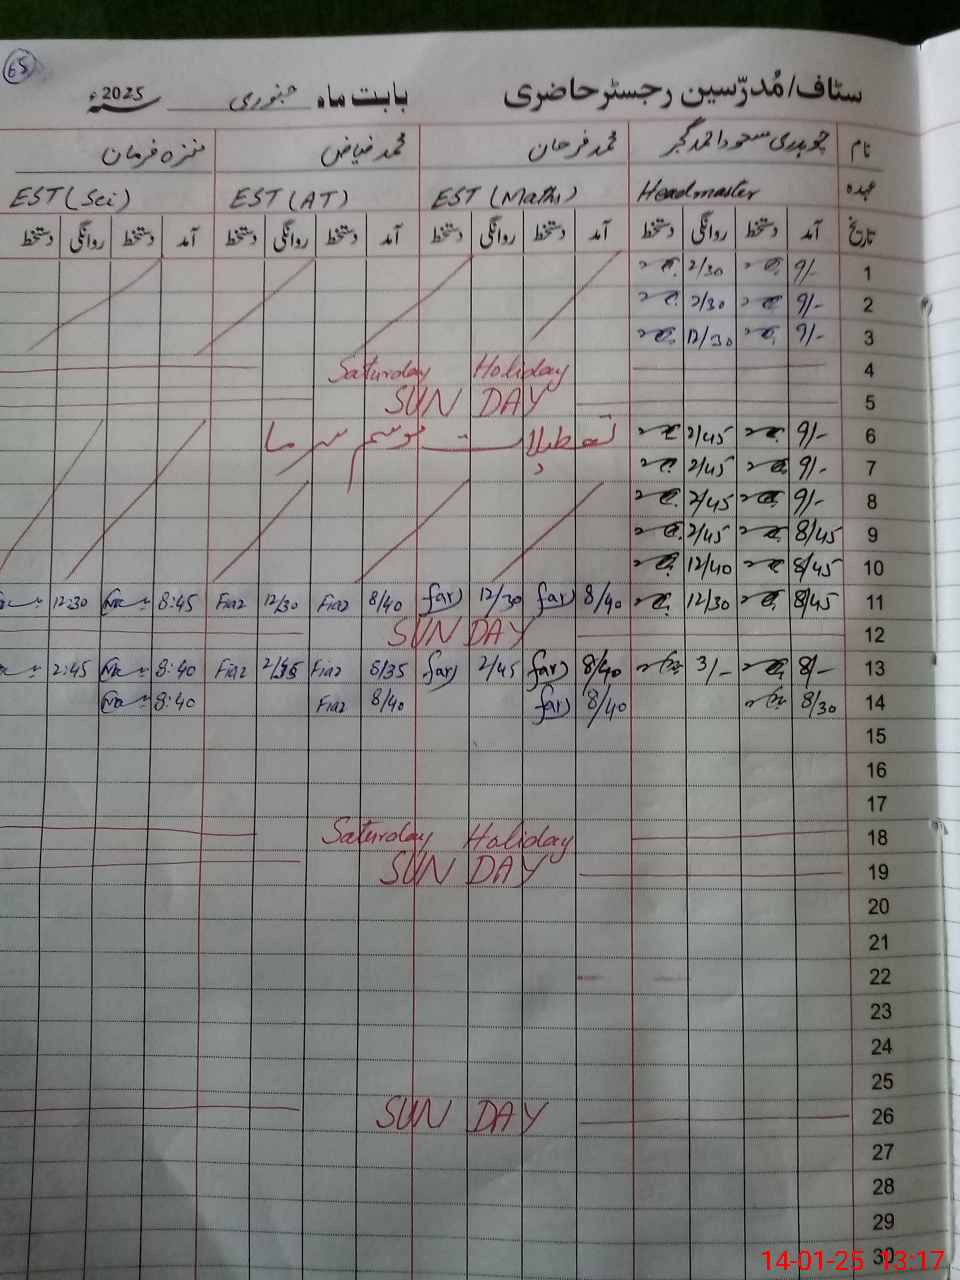 65
سٹاف/مُدرّسین رجسٹر حاضری بابت ماہ جنوری سنہ 2025ء
نام چوہدری سعود احمد گجر محمد فرحان محمد فیاض فرمان
عہدہ Headmaster EST (Math) EST (AT) EST (Sci)
تاریخ آمد دستخط روانگی دستخط آمد دستخط روانگی دستخط آمد دستخط روانگی دستخط آمد دستخط روانگی دستخط
1 9/- 2/30
2 9/- 2/30
3 9/- 12/30
4 Saturday Holiday
5 SUN DAY
6 9/- 2/45 تعطیلات موسم سرما
7 9/- 2/45
8 9/- 2/45
9 8/45 2/45
10 8/45 12/40
11 8/45 12/30 8/40 far) 12/30 far) 8/40 Fiaz 12/30 Fiaz 8:45 12:30
12 SUN DAY
13 8/- 3/- 8/40 far) 2/45 far) 8/35 Fiaz Fiaz 8:40 2:45
14 8/30 8/40 far) 8/40 Fiaz 8:40
15
16
17
18 Saturday Holiday
19 SUN DAY
20
21
22
23
24
25
26 SUN DAY
27
28
29
30
14-01-25 13:17